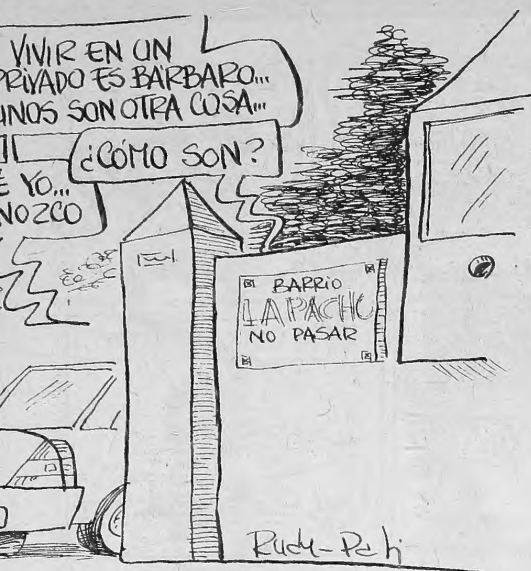 VIVIR EN UN
PRIVADO ES BÁRBARO...
UNOS SON OTRA COSA...
¿CÓMO SON?
É YO...
NOZCO
BARRIO
LAPACHO
NO PASAR
Rudy-Pati